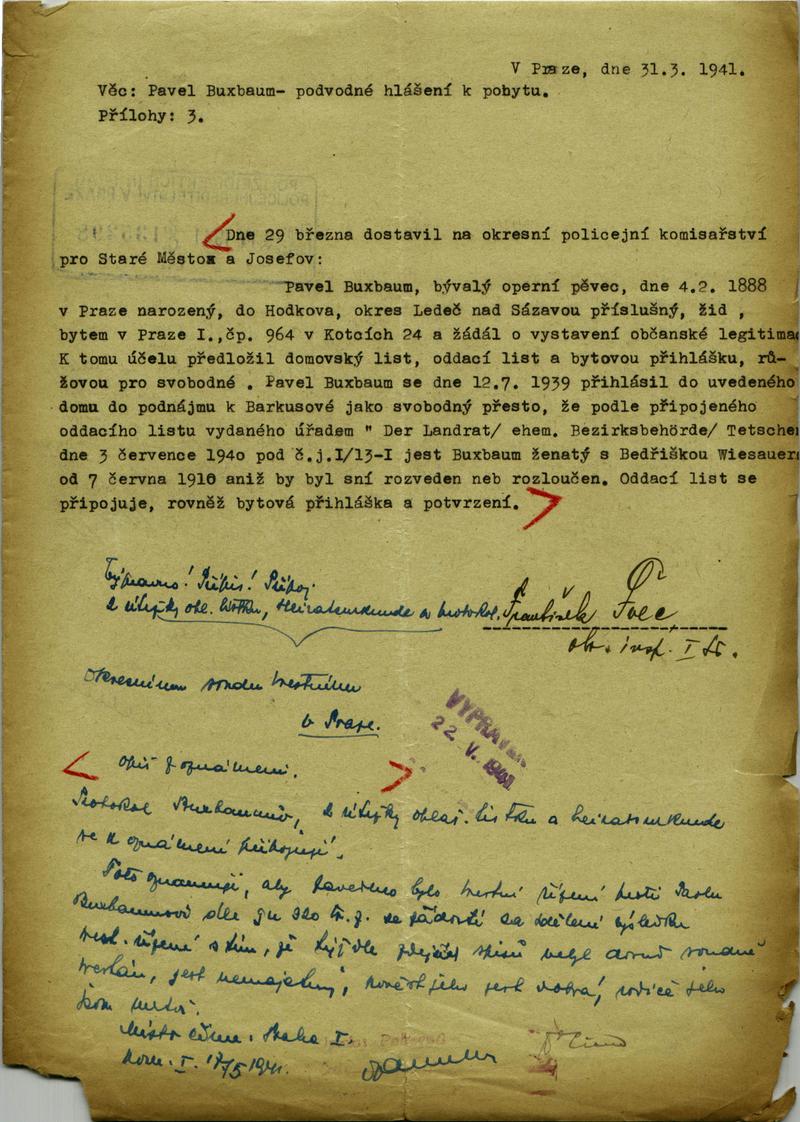 V Praze, dne 31.3. 1941.
Věc: Pavel Buxbaum- podvodné hlášení k pobytu.
Přílohy: 3.
Dne 29 března dostavil na okresní policejní komisařství
pro Staré Město a Josefov:
Pavel Buxbaum, bývalý operní pěvec, dne 4.2. 1888
v Praze narozený, do Hodkova, okres Ledeč nad Sázavou příslušný, žid ,
bytem v Praze I.,čp. 964 v Kotcích 24 a žádál o vystavení občanské legitimac
K tomu účelu předložil domovský list, oddací list a bytovou přihlášku, rů-
žovou pro svobodné . Pavel Buxbaum se dne 12.7. 1939 přihlásil do uvedeného
domu do podnájmu k Barkusové jako svobodný přesto, že podle připojeného
oddacího listu vydaného úřadem " Der Landrat/ ehem. Bezirksbehörde/ Tetschen
dne 3 července 1940 pod č.j.I/13-I jest Buxbaum ženatý s Bedřiškou Wiesauer
od 7 června 1910 aniž by byl sní rozveden neb rozloučen. Oddací list se
připojuje, rovněž bytová přihláška a potvrzení.
2 útržky ohl. lístku, Heiratsurkunde a protokol.
František Švec
obv. insp. I
Okresnímu soudu trestnímu
v Praze.
VYPRAVEN
22. V. 1941
Opis oznámení.
Protokol Buxbaumův, 2 útržky ohlaš. lístku a heiratsurkunde
se k oznámení připojují.
Toto oznamuji, aby zavedeno bylo trestní řízení proti Pavlu
Buxbaumovi dle § 320 tr. z. se žádostí za sdělení výsledku
trest. řízení s tím, že týž dle zdejších spisů nebyl dosud soudně
trestán, jest nemajetný, pověst jeho jest dobrá, rodiče jeho
jsou mrtvi.
Místo činu: Praha I.
Kom. I. 17/5 1941.